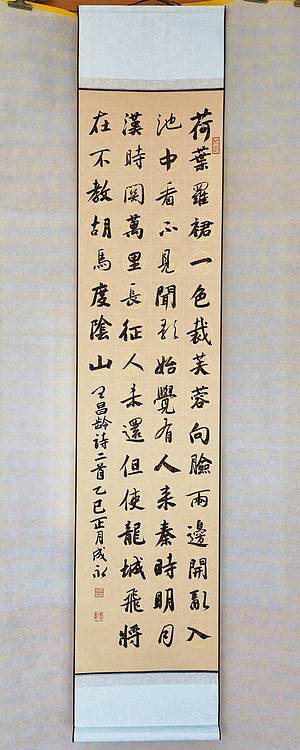 荷葉羅裙一色裁芙蓉向臉兩邊開亂入
池中看不見聞歌始覺有人来秦時明月
漢時関萬里長征人未還但使龍城飛將
在不教胡馬度陰山王昌齡詩二首乙巳正月成永